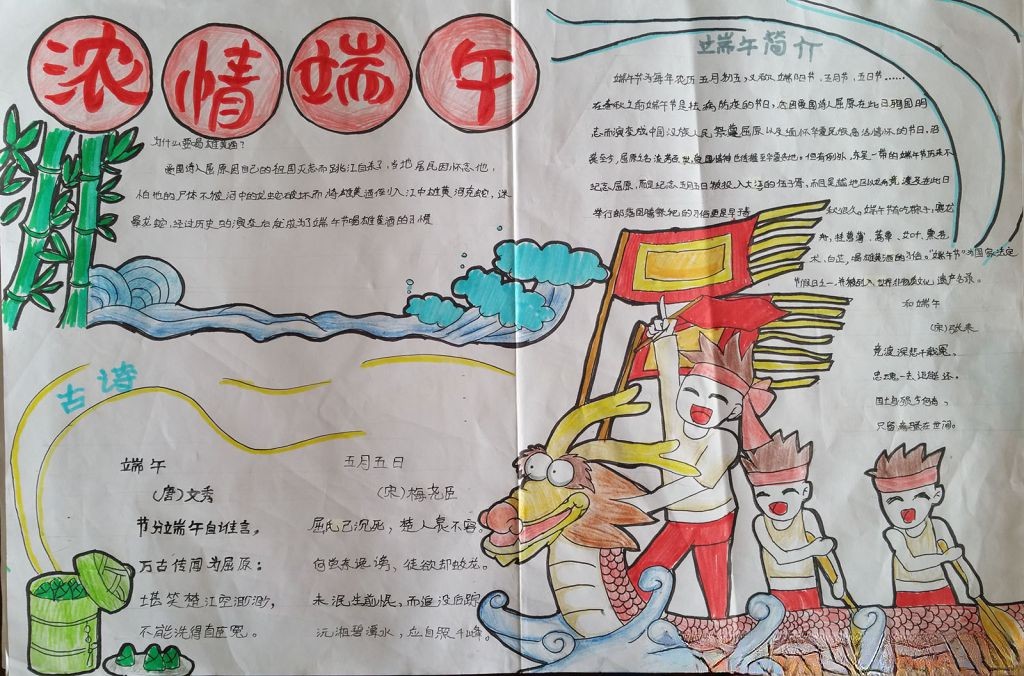 浓情端午
为什么要喝雄黄酒？
爱国诗人屈原因自己的祖国灭亡而跳江自杀，当地居民因怀念他，
怕他的尸体不被河中的龙蛇破坏而将雄黄酒倒入江中雄黄河克蛇，迷
晕龙蛇，经过历史的演变后就成为端午节喝雄黄酒的习惯
端午简介
端午节为每年农历五月初五，又称端阳节、五月节、五日节……
在春秋之前端午节是祛病防疫的节日，后因爱国诗人屈原在此日殉国明
志而演变成中国汉族人民祭奠屈原以及缅怀华夏民族高洁情怀的节日，沿
纪念屈原，而是纪念五月五日被投入大江的伍子胥，而且吴越地区以龙为
举行部落图腾祭祀的习俗更是早于
秋很久。端午节有吃粽子，赛龙
舟，挂菖蒲、蒿草、艾叶、薰苍
术、白芷，喝雄黄酒的习俗。“端午节”为国家法定
节假日之一，并被列入世界非物质文化遗产名录。
和端午
（宋）张耒
竞渡深悲千载冤，
忠魂一去讵能还。
国土身殒今何有，
只留离骚在世间。
古诗
端午
（唐）文秀
节分端午自谁言，
万古传闻为屈原；
堪笑楚江空渺渺，
不能洗得直臣冤。
五月五日
（宋）梅尧臣
屈氏已沉死，楚人哀不容。
何尝奈谗谤，徒欲却蛟龙。
未泯生前恨，而追没后踪
沅湘碧潭水，应自照千峰。